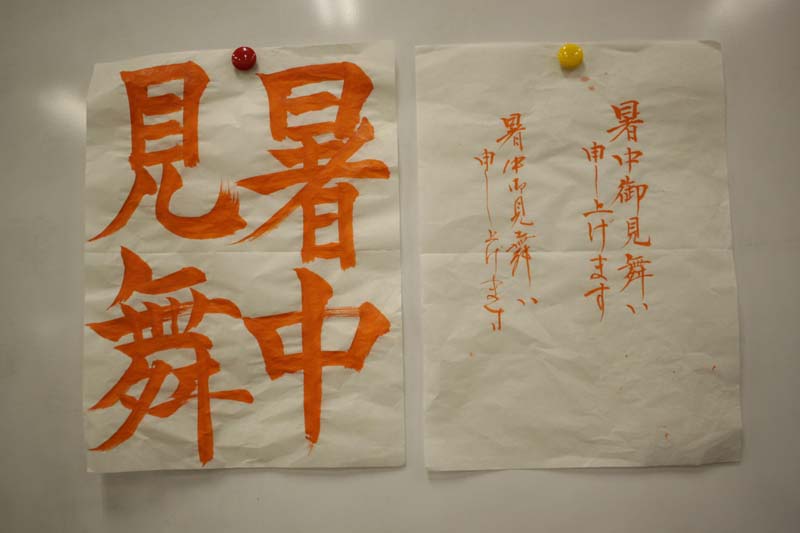 暑中
見舞
暑中御見舞い
申し上げます
暑中御見舞い
申し上げます